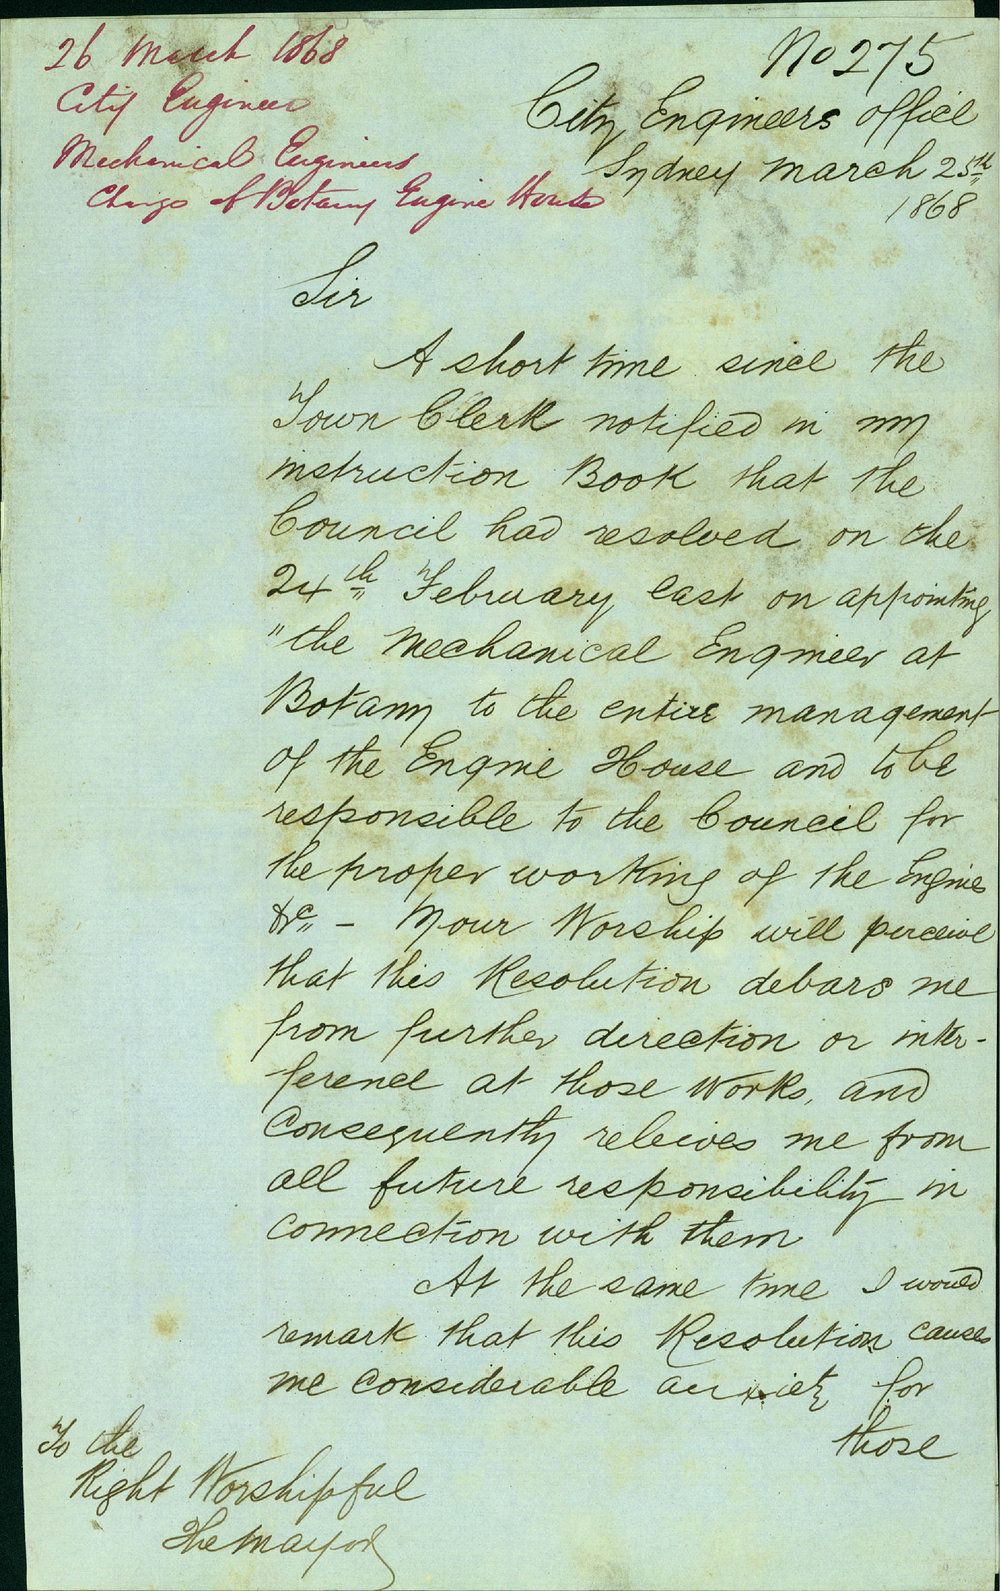 26 March 1868
City Engineer
Mechanical Engineers
Charge of Botany Engine House
No 275
City Engineers office
Sydney March 25th
1868
Sir
A short time since the
Town Clerk notified in my
instruction Book that the
Council had resolved on the
24th February last on appointing
"the Mechanical Engineer at
Botany to the entire management
of the Engine House and to be
responsible to the Council for
the proper working of the Engines
&c" - Your Worship will perceive
that this Resolution debars me
from further direction or inter-
ference at those Works, and
Consequently releives me from
all future responsibility in
connection with them
At the same time I would
remark that this Resolution causes
me considerable anxiety for
those
To the
Right Worshipful
The Mayor